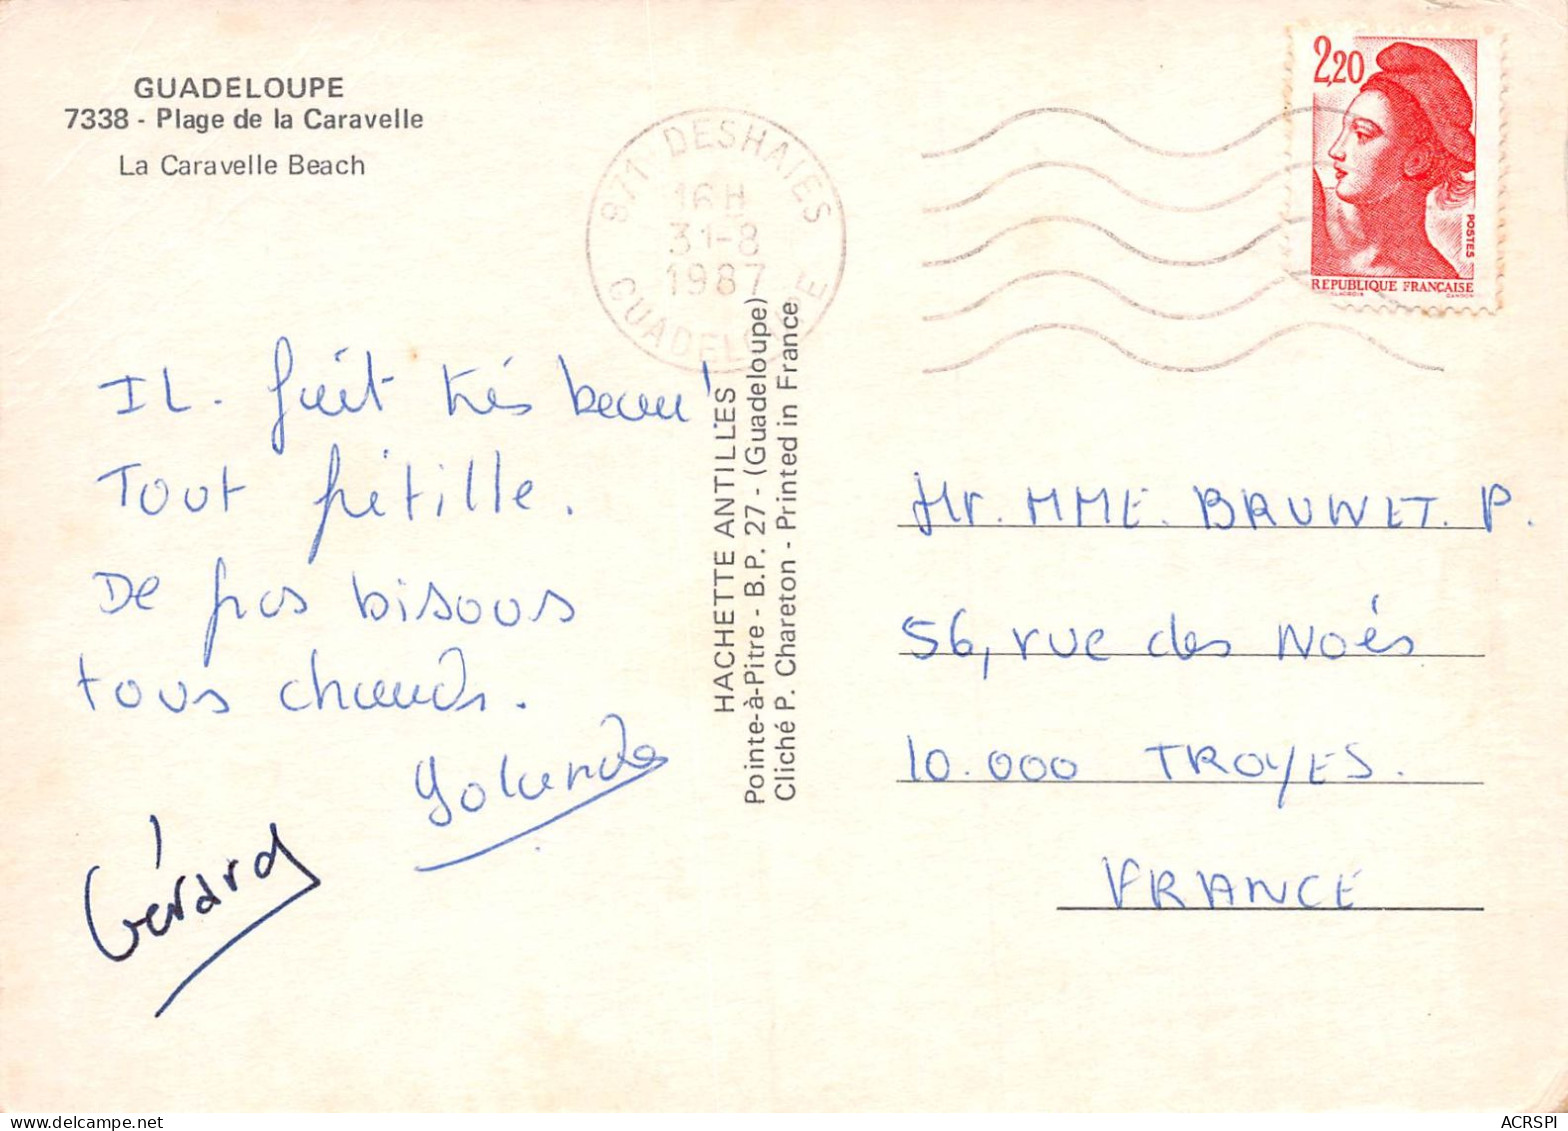 GUADELOUPE
7338 - Plage de la Caravelle
La Caravelle Beach
971 DESHAIES
16H
31-8
1987
GUADELOUPE
2,20
POSTES
REPUBLIQUE FRANÇAISE
DELACROIX GANDON
IL. fait très beau!
Tout pétille.
De gros bisous
tous chauds.
Yolande
Gérard
HACHETTE ANTILLES
Pointe-à-Pitre - B.P. 27 - (Guadeloupe)
Cliché P. Chareton - Printed in France
Mr. MME. BRUNET. P.
56, rue des Noés
10.000 TROYES.
FRANCE
ACRSPI